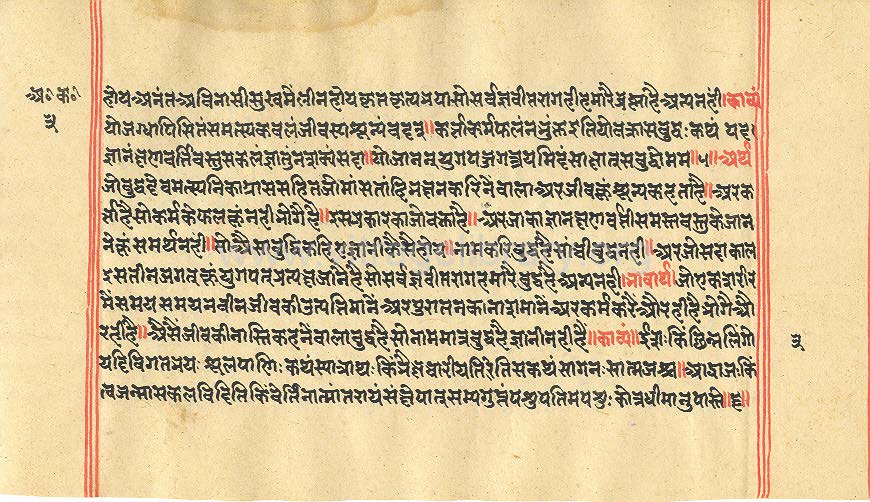 होय अनंत अविनासी सुखमैं लीन होय कृतकृत्य भया सो सर्वज्ञ वीतराग ही हमारै ब्रह्मा है अन्य नहीं ॥ काव्यं
अ॰ क॰
३
यो जग्ध्वा पिसितं समत्स्यकवलं जीवस्य शून्यं वदन् ॥ कर्त्ता कर्मफलं न भुंक्त इति यो वक्ता स बुद्धः कथं यद्
ज्ञानं क्षणवर्तिवस्तुसकलं ज्ञातुं न शक्यं सदा ॥ यो जानन युगपज्जगत्त्रयमिदं साक्षात् स बुद्धो मम ॥५॥ अर्थ
जो बुद्धदेव मत्स्यनि का ग्रास सहित जो मांस तांहि भक्षन करिनैंवाला अर जीवकूं शून्य कहता है ॥ अर क
र्त्ता है सो कर्म के फलकूं नहीं भोगै है ॥ इस प्रकार का जो वक्ता है ॥ अर जाका ज्ञान क्षणवर्त्ती समस्त वस्तु के जान
नेकूं समर्थ नहीं ॥ सो औसा बुद्धि करि रहत ज्ञानी कैसैं होय ॥ नाम करि बुद्ध है सांचौ बुद्ध नहीं ॥ अर जो सदा काल
इस तीन जगतकूं युगपत प्रत्यक्ष जानै है सो सर्वज्ञ वीतराग हमारै बुद्ध है अन्य नहीं ॥ भावार्थ ॥ जो एक शरीर
मैं समय समय नवीन जीव की उत्पत्ति मानै अर पुरातन का नाश मानै अर कर्म करै और ही है भोगै औ
र ही है ॥ औसैं जीव की नास्ति कहनैवाला बुद्ध है सो नाम मात्र बुद्ध है ज्ञानी नहीं है ॥ काव्यं ॥ ईशः किं छिन्नलिंगो
३
यदि विगतभयः शूलपाणिः कथं स्यान्नाथः किं भैक्षचारी यतिरिति स कथं सांगनः सात्मजश्च ॥ आर्द्राजः किं
त्वजन्मा सकलविदिति किं वेत्ति नात्मांतरायं संक्षेपात् सम्यगुक्तं पशुपतिमपशुः को त्र धीमानुपास्ते ॥६॥